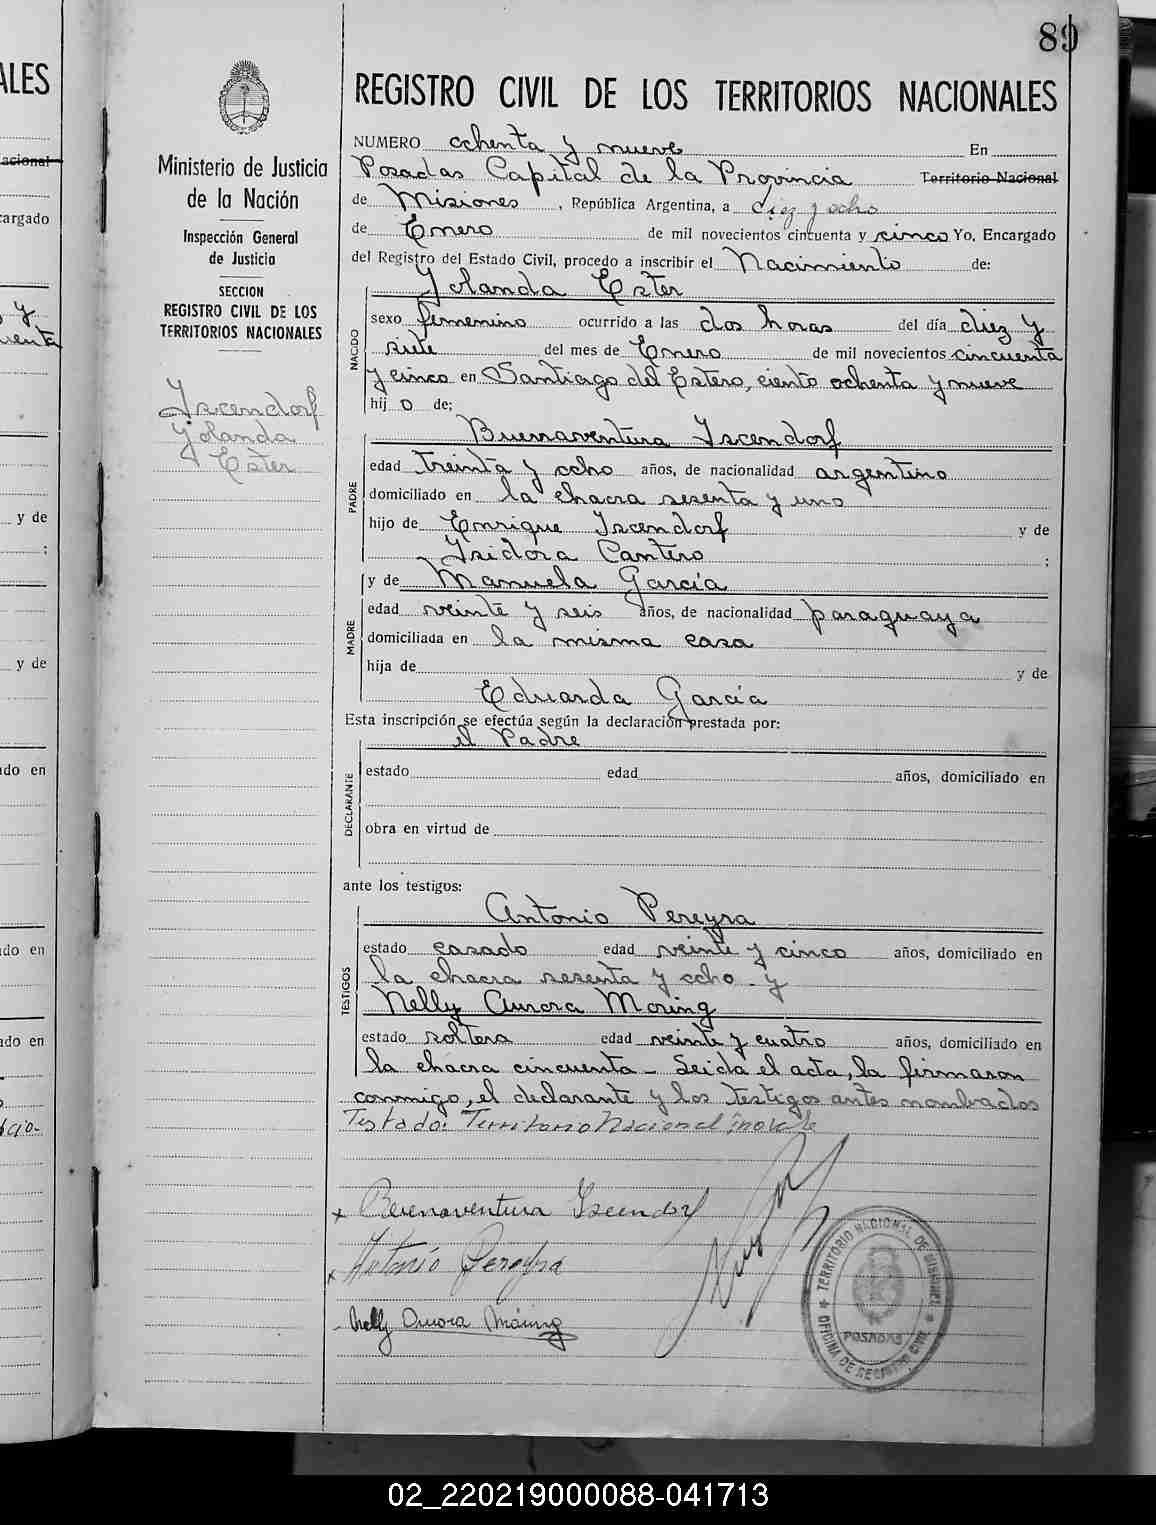 89
ALES
REGISTRO CIVIL DE LOS TERRITORIOS NACIONALES
Ministerio de Justicia
de la Nación
Inspección General
de Justicia
SECCION
REGISTRO CIVIL DE LOS
TERRITORIOS NACIONALES
Iscendorf
Yolanda
Ester
NUMERO ochenta y nueve En
Posadas Capital de la Provincia Territorio Nacional
de Misiones, República Argentina, a diez y ocho
de Enero de mil novecientos cincuenta y cinco Yo, Encargado
del Registro del Estado Civil, procedo a inscribir el Nacimiento de:
Yolanda Ester
NACIDO
sexo femenino ocurrido a las dos horas del día diez y
siete del mes de Enero de mil novecientos cincuenta
y cinco en Santiago del Estero, ciento ochenta y nueve
hij o de;
Buenaventura Iscendorf
PADRE
edad treinta y ocho años, de nacionalidad argentino
domiciliado en la chacra sesenta y uno
hijo de Enrique Iscendorf y de
Isidora Cantero ;
y de Manuela García
MADRE
edad veinte y seis años, de nacionalidad paraguaya
domiciliada en la misma casa
hija de y de
Eduarda García
Esta inscripción se efectúa según la declaración prestada por:
el Padre
DECLARANTE
estado edad años, domiciliado en
obra en virtud de
ante los testigos:
Antonio Pereyra
TESTIGOS
estado casado edad veinte y cinco años, domiciliado en
la chacra sesenta y ocho y
Nelly Aurora Moring
estado soltera edad veinte y cuatro años, domiciliado en
la chacra cincuenta - Leida el acta, la firmaron
conmigo, el declarante y los testigos antes nombrados
Testado: Territorio Nacional no vale
Buenaventura Iscendorf
Antonio Pereyra
Nelly Aurora Moring
TERRITORIO NACIONAL DE MISIONES
POSADAS
OFICINA DE REGISTRO CIVIL
02_220219000088-041713